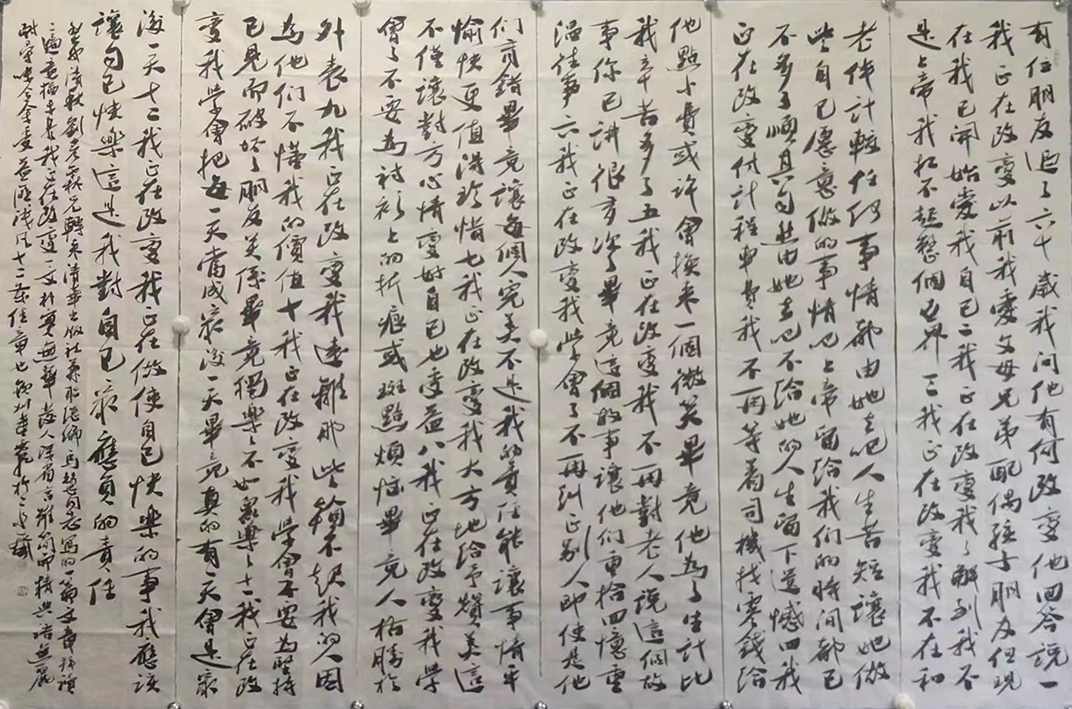 有位朋友過了六十歲我问他有何改变他回答説一
我正在改变以前我爱父母兄弟配偶孩子朋友但現
在我已開始爱我自己二我正在改变我了解到我不
是上帝我扛不起整個世界三我正在改变我不在和
老伴計較任何事情都由她去吧人生苦短讓她做
些自己愿意做的事情吧上帝留给我们的時间都已
不多了順其自然由她去吧不给她的人生留下遗憾四我
正在改变付計程車费我不再等着司機找零錢给
他點小费或许會换来一個微笑畢竟他為了生計比
我辛苦多了五我正在改变我不再對老人説這個故
事你已讲很多次了畢竟這個故事讓他们重拾回憶重
温往事六我正在改变我学會了不再纠正别人即使是他
们有錯畢竟讓每個人完美不是我的責任能讓事情平
愉快更值得珍惜七我正在改变我大方地给予赞美這
不僅讓對方心情变好自己也受益八我正在改变我学
會了不要為衬衫上的折痕或斑點煩惱畢竟人格勝於
外表九我正在改变我遠離那些瞧不起我的人因
為他们不懂我的價值十我正在改变我学會不要為堅持
已見而破坏了朋友关係畢竟獨樂樂不如眾樂樂十一我正在改
变我学會把每一天當成最後一天畢竟真的有一天會是最
後一天十二我正在改变我正在做使自己快樂的事我應該
讓自己快樂這是我對自己最應負的責任